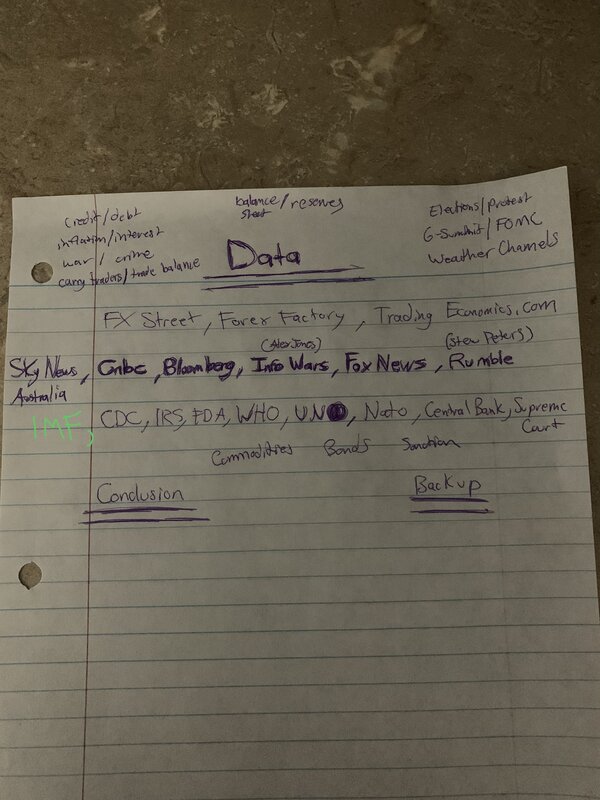 Credit/debt
inflation/interest
war/crime
carry traders/trade balance
balance/reserves
sheet
Elections/protest
G-Summit/FOMC
Weather Channels
Data
FX Street, Forex Factory, Trading Economics.com
(Alex Jones) (Stew Peters)
Sky News, Cnbc, Bloomberg, Info Wars, Fox News, Rumble
Australia
IMF, CDC, IRS, FDA, WHO, UN, Nato, Central Bank, Supreme
Court
Commodities Bonds Sanction
Conclusion Backup